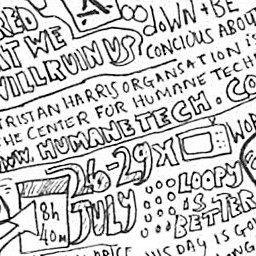 RED
AT WE
WILL RUIN US
A
DOWN + BE
CONCIOUS ABOU
TRISTAN HARRIS ORGANSATION IS
THE CENTER FOR HUMANE TECH
WWW. HUMANETECH. CO
26-29
JULY
8h
40m
X
WOR
LOOPY
IS
BETTER
PRICE
HIS DAY IS GO
ONG